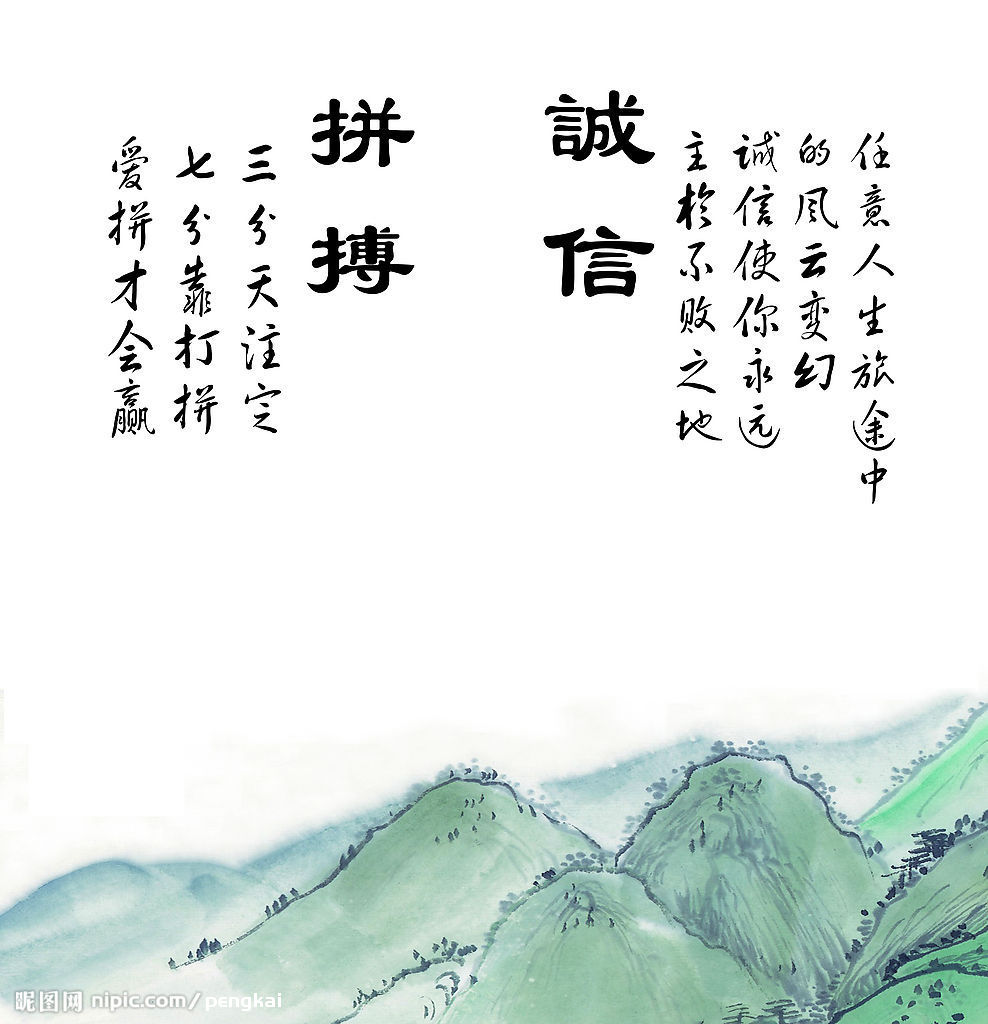 誠信
任意人生旅途中
的风云变幻
诚信使你永远
立於不败之地
拼搏
三分天注定
七分靠打拼
爱拼才会赢
昵图网 nipic.com/ pengkai